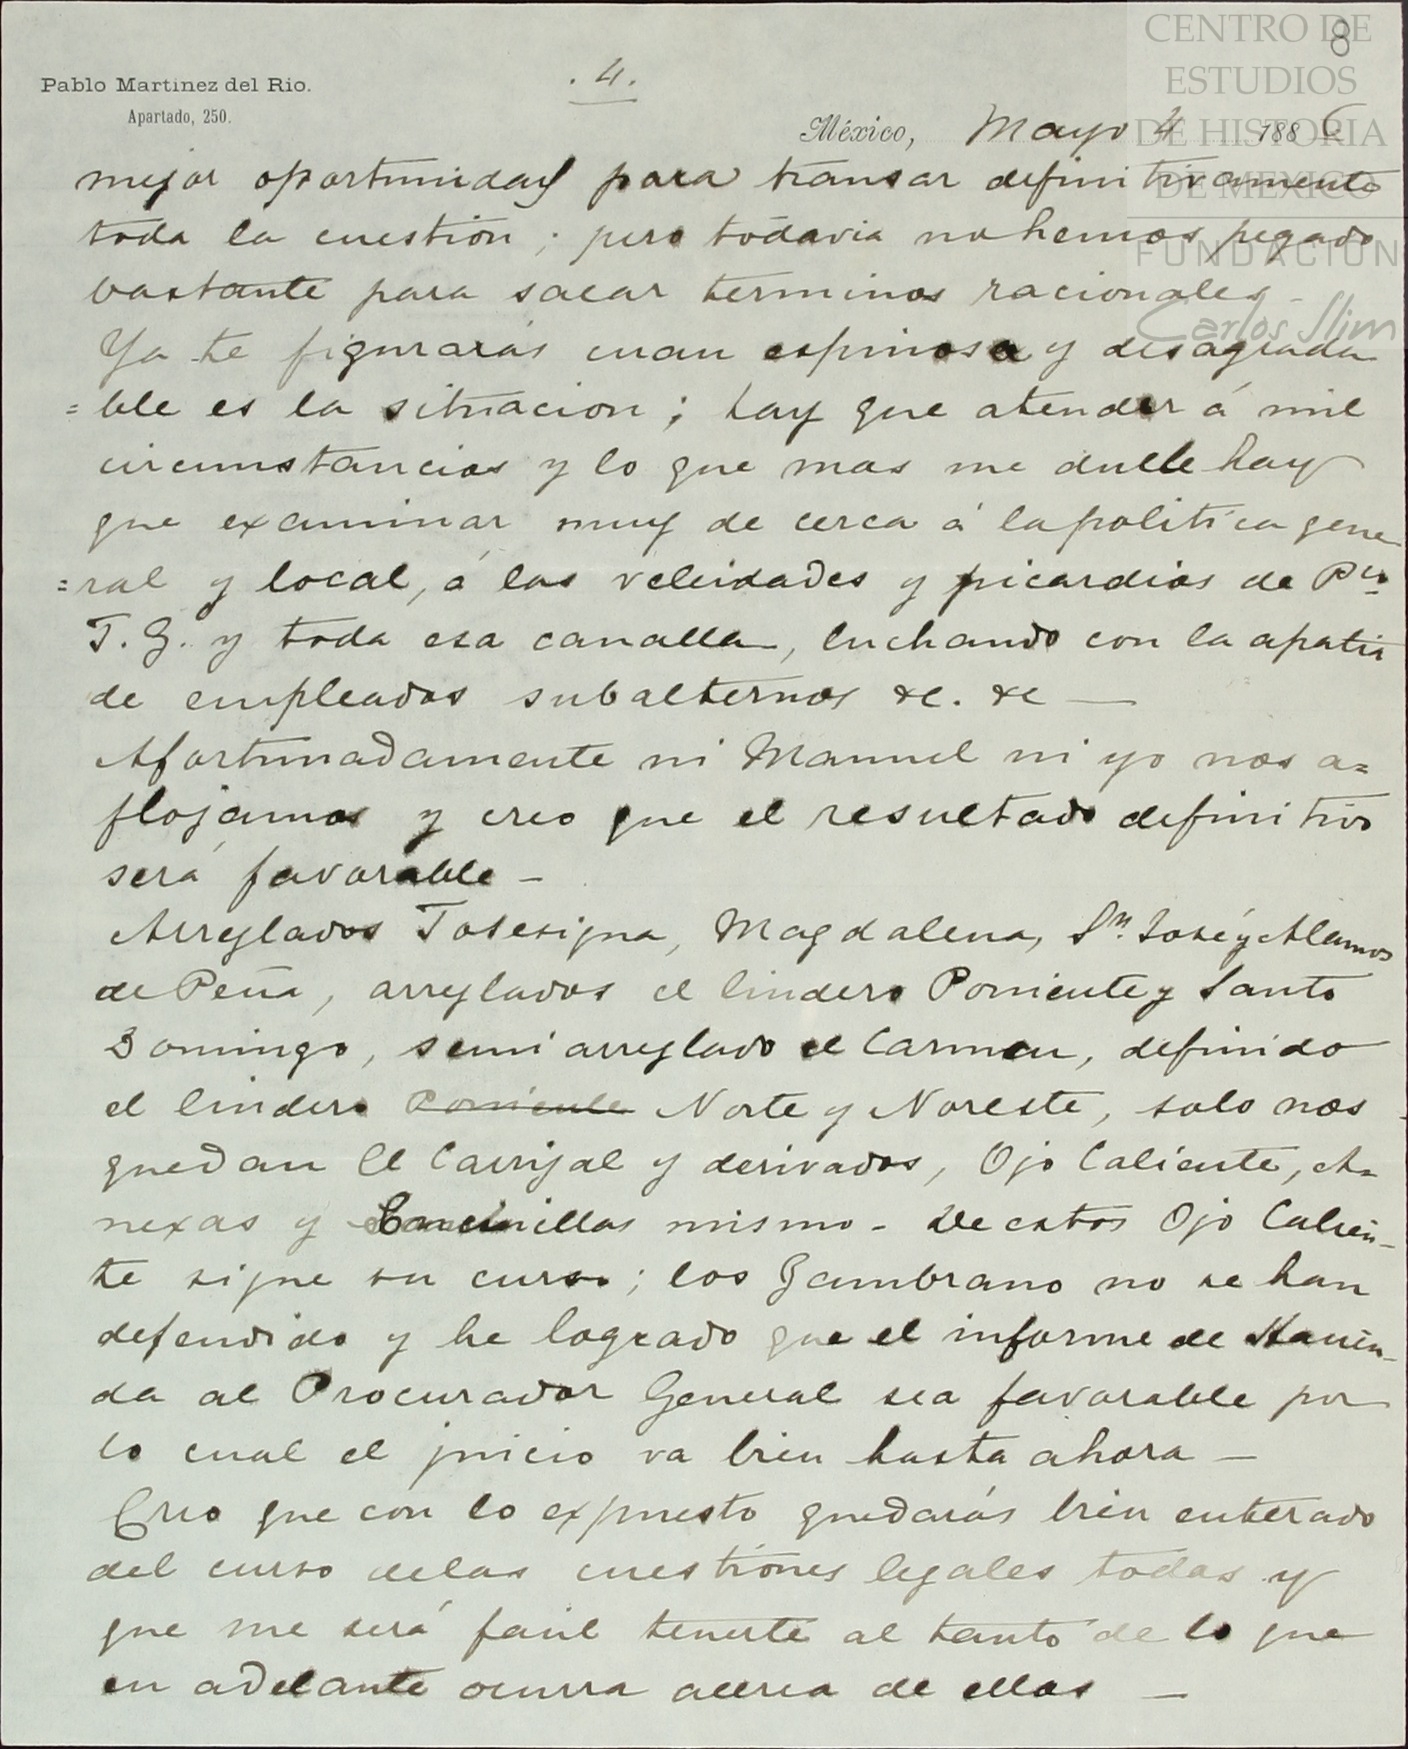 8
.4.
Pablo Martinez del Rio.
Apartado, 250.
México, Mayo 4 1886
mejor oportunidad para transar definitivamente
toda la cuestión; pero todavia no hemos pegado
bastante para sacar terminos racionales -
Ya te figurarás cuan espinosa y desagrada
=ble es la situacion; hay que atender á mil
circumstancias y lo que mas me duele hay
que examinar muy de cerca á la politica gene
=ral y local, á las veleidades y picardias de
T. G. y toda esa canalla, luchando con la apatia
de empleados subalternos &c. &c —
Afortunadamente ni Manuel ni yo nos a=
flojamos y creo que el resultado definitivo
será favorable -
Arreglados Tosesigua, Magdalena, Sn. José y Alamos
de Peña, arreglados el lindero Poniente y Santo
Domingo, semi arreglado el Carmen, definido
el lindero Poniente Norte y Noreste, solo nos
quedan El Carrizal y derivados, Ojo Caliente, A-
nexas y Encinillas mismo - De estos Ojo Calien-
te sigue su curso; los Zambrano no se han
defendido y he logrado que el informe de Hacien-
da al Procurador General sea favorable por
lo cual el juicio va bien hasta ahora —
Creo que con lo expuesto quedarás bien enterado
del curso de las cuestiones legales todas y
que me será facil tenerte al tanto de lo que
en adelante ocurra acerca de ellas —
CENTRO DE
ESTUDIOS
DE HISTORIA
DE MEXICO
FUNDACION
Carlos Slim